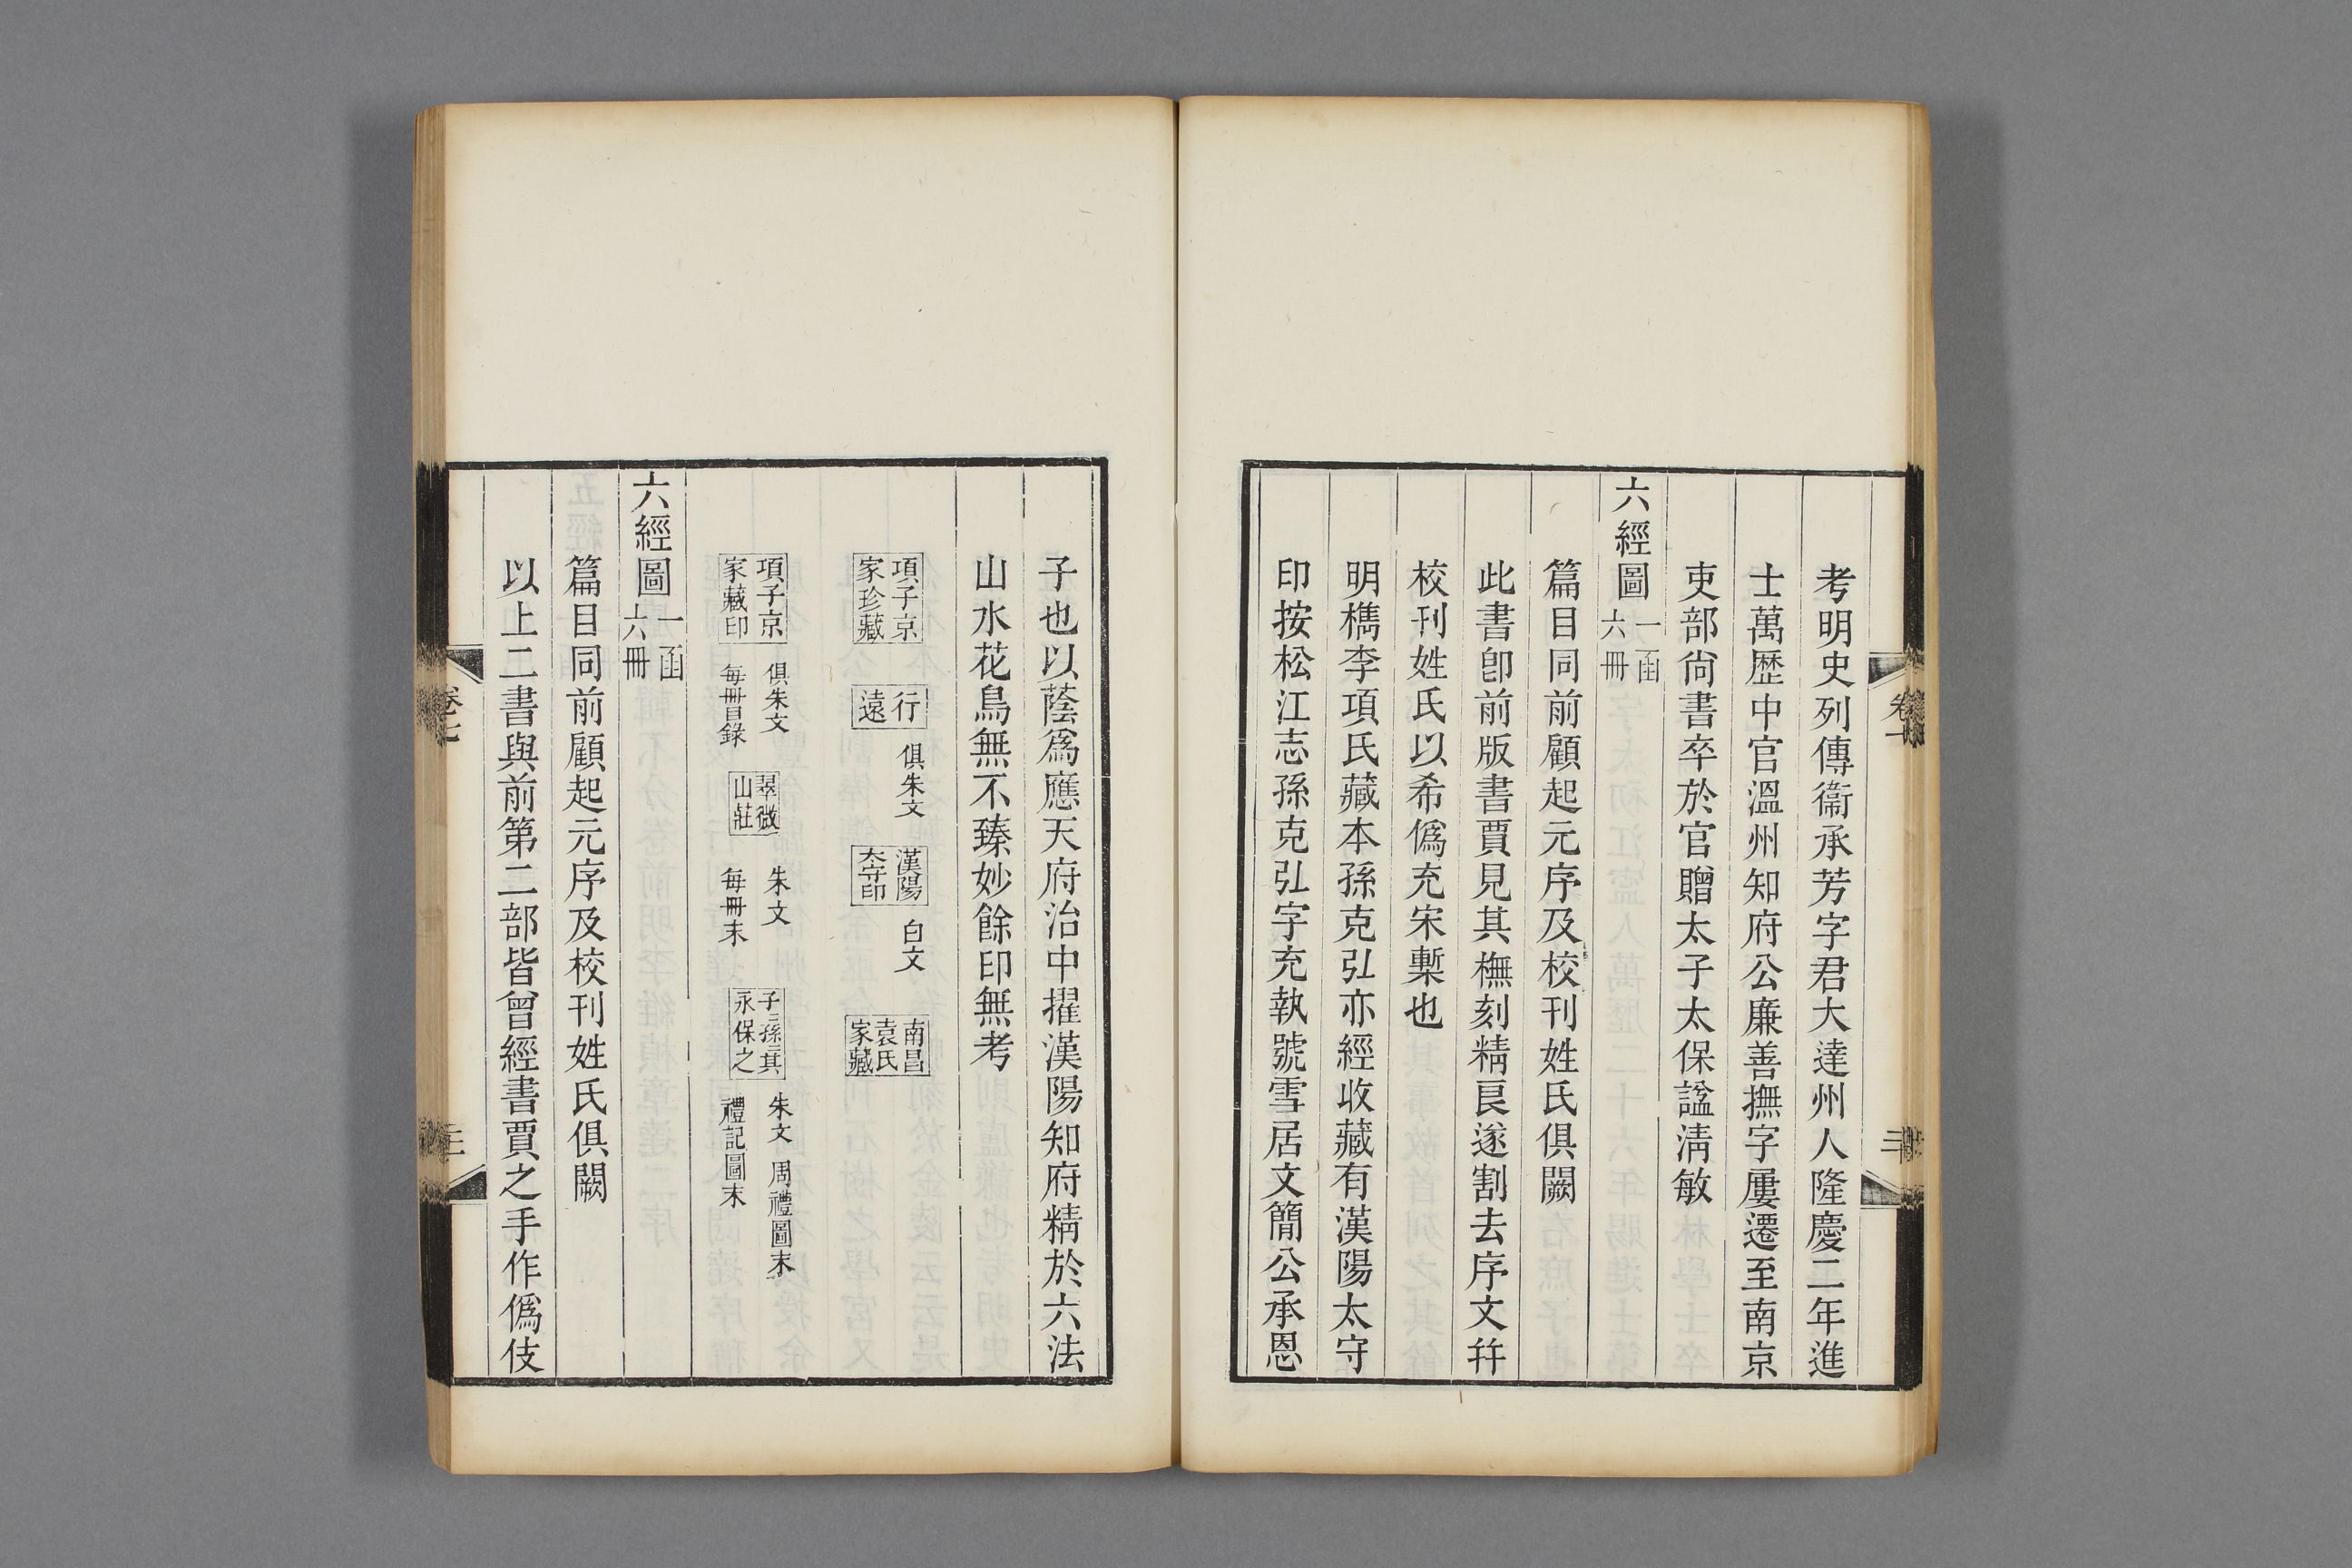 考明史列傳衞承芳字君大達州人隆慶二年進
士萬歷中官溫州知府公廉善撫字屢遷至南京
吏部尚書卒於官贈太子太保諡淸敏
六經圖
一函
六冊
篇目同前顧起元序及校刊姓氏俱闕
此書卽前版書賈見其橅刻精良遂割去序文幷
校刊姓氏以希僞充宋槧也
明檇李項氏藏本孫克弘亦經收藏有漢陽太守
印按松江志孫克弘字充執號雪居文簡公承恩
子也以蔭爲應天府治中擢漢陽知府精於六法
山水花鳥無不臻妙餘印無考
項子京
家珍藏
行
遠
俱朱文
漢陽
太守印
白文
南昌
袁氏
家藏
項子京
家藏印
俱朱文
每冊目錄
翠微
山莊
朱文
每冊末
子二孫二其
永保之
朱文 周禮圖末
禮記圖末
六經圖
一函
六冊
篇目同前顧起元序及校刊姓氏俱闕
以上二書與前第二部皆曾經書賈之手作僞伎
卷七